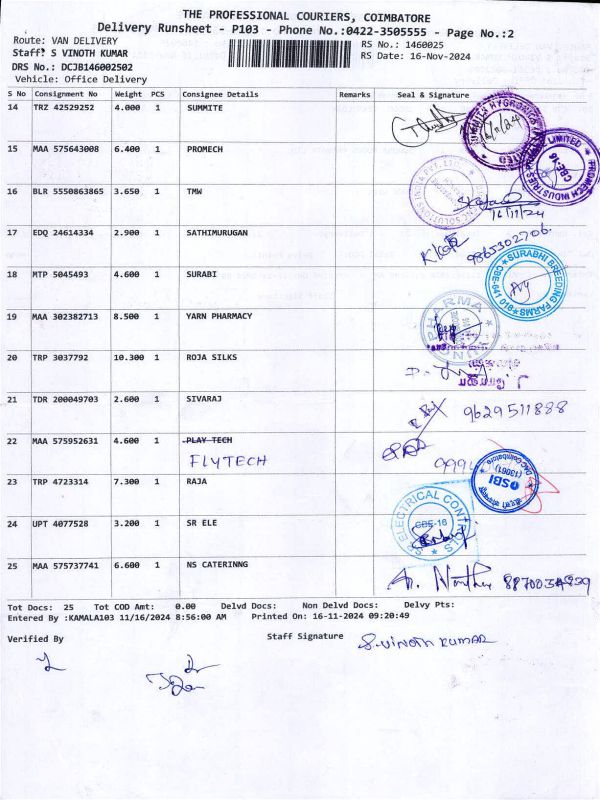 THE PROFESSIONAL COURIERS, COIMBATORE
Delivery Runsheet - P103 - Phone No.:0422-3505555 - Page No.:2
Route: VAN DELIVERY
RS No.: 1460025
Staff: S VINOTH KUMAR
RS Date: 16-Nov-2024
DRS No.: DCJB146002502
Vehicle: Office Delivery
S No Consignment No Weight PCS Consignee Details Remarks Seal & Signature
14 TRZ 42529252 4.000 1 SUMMITE
15 MAA 575643008 6.400 1 PROMECH
PROMECH INDUSTRIES PRIVATE LIMITED CBE-16
16 BLR 5550863865 3.650 1 TMW
16/11/24
17 EDQ 24614334 2.900 1 SATHIMURUGAN
9865302706
18 MTP 5045493 4.600 1 SURABI
SURABHI BREEDING FARMS CBE-641 016
19 MAA 302382713 8.500 1 YARN PHARMACY
PHARMA
20 TRP 3037792 10.300 1 ROJA SILKS
21 TDR 200049703 2.600 1 SIVARAJ
9629511888
22 MAA 575952631 4.600 1 PLAY TECH
FLYTECH
23 TRP 4723314 7.300 1 RAJA
SBI
24 UPT 4077528 3.200 1 SR ELE
SR ELECTRICAL CONTROLS CBE-16
25 MAA 575737741 6.600 1 NS CATERINNG
Tot Docs: 25 Tot COD Amt: 0.00 Delvd Docs: Non Delvd Docs: Delvy Pts:
Entered By :KAMALA103 11/16/2024 8:56:00 AM Printed On: 16-11-2024 09:20:49
Verified By
Staff Signature
S.VINOTH KUMAR